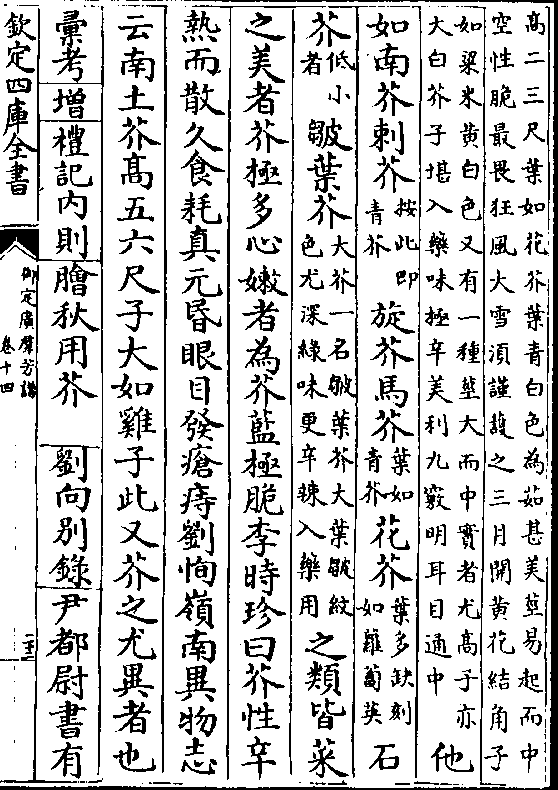 高二三尺葉如花芥葉青白色為茹甚美莖易起而中
空性脆最畏狂風大雪須謹護之三月開黃花結角子
如粱米黃白色又有一種莖大而中實者尤高子亦
大白芥子堪入藥味極辛美利九竅明耳目通中
他
如南芥刺芥
按此即
青芥
旋芥馬芥
葉如
青芥
花芥
葉多缺刻
如蘿蔔英
石
芥
低小
者
皺葉芥
大芥一名皺葉芥大葉皺紋
色尤深綠味更辛辣入藥用
之類皆菜
之美者芥極多心嫩者為芥藍極脆李時珍曰芥性辛
熱而散久食耗真元昏眼目發瘡痔劉恂嶺南異物志
云南土芥高五六尺子大如雞子此又芥之尤異者也
彙考增禮記內則膾秋用芥 劉向別錄尹都尉書有
欽定四庫全書
御定廣羣芳譜
卷十四